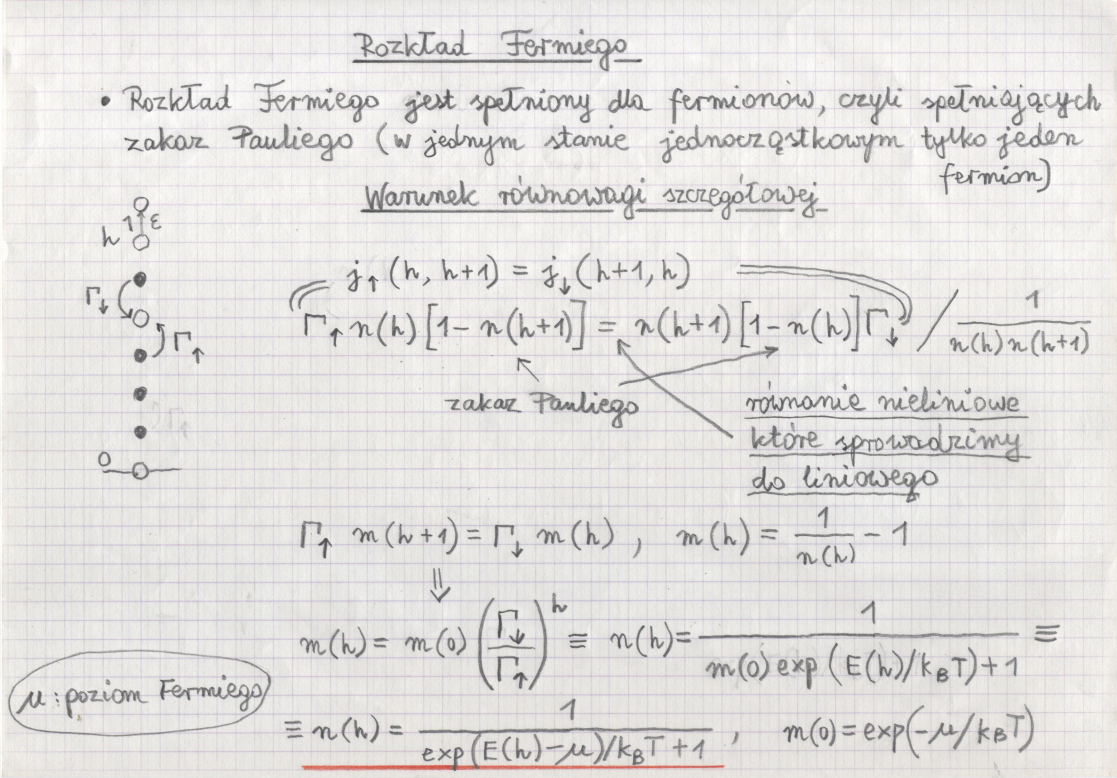 Rozkład Fermiego
• Rozkład Fermiego jest spełniony dla fermionów, czyli spełniających
zakaz Pauliego (w jednym stanie jednocząstkowym tylko jeden
fermion)
Warunek równowagi szczegółowej
h 1 ↑ ε
j↑(h, h+1) = j↓(h+1, h)
Γ↓
Γ↑ n(h) [1 - n(h+1)] = n(h+1) [1 - n(h)] Γ↓ / 1/(n(h) n(h+1))
Γ↑
zakaz Pauliego
równanie nieliniowe
które sprowadzimy
do liniowego
0
Γ↑ m(h+1) = Γ↓ m(h) , m(h) = 1/n(h) - 1
⇓
m(h) = m(0) (Γ↓/Γ↑)^h ≡ n(h) = 1/(m(0) exp (E(h)/kBT) + 1) ≡
μ: poziom Fermiego
≡ n(h) = 1/(exp(E(h) - μ)/kBT + 1) , m(0) = exp(-μ/kBT)